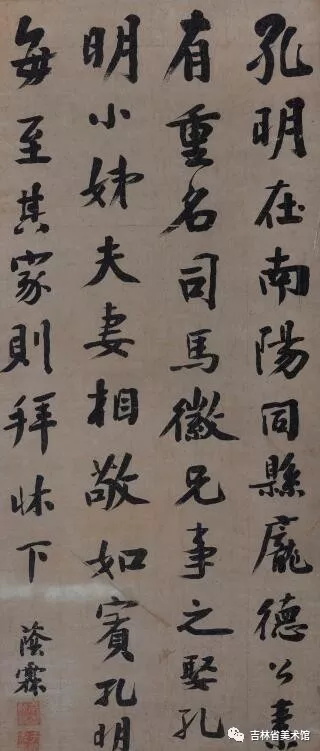 孔明在南陽同縣龐德公素
有重名司馬徽兄事之娶孔
明小姊夫妻相敬如賓孔明
每至其家則拜牀下
蔭霖
吉林省美术馆